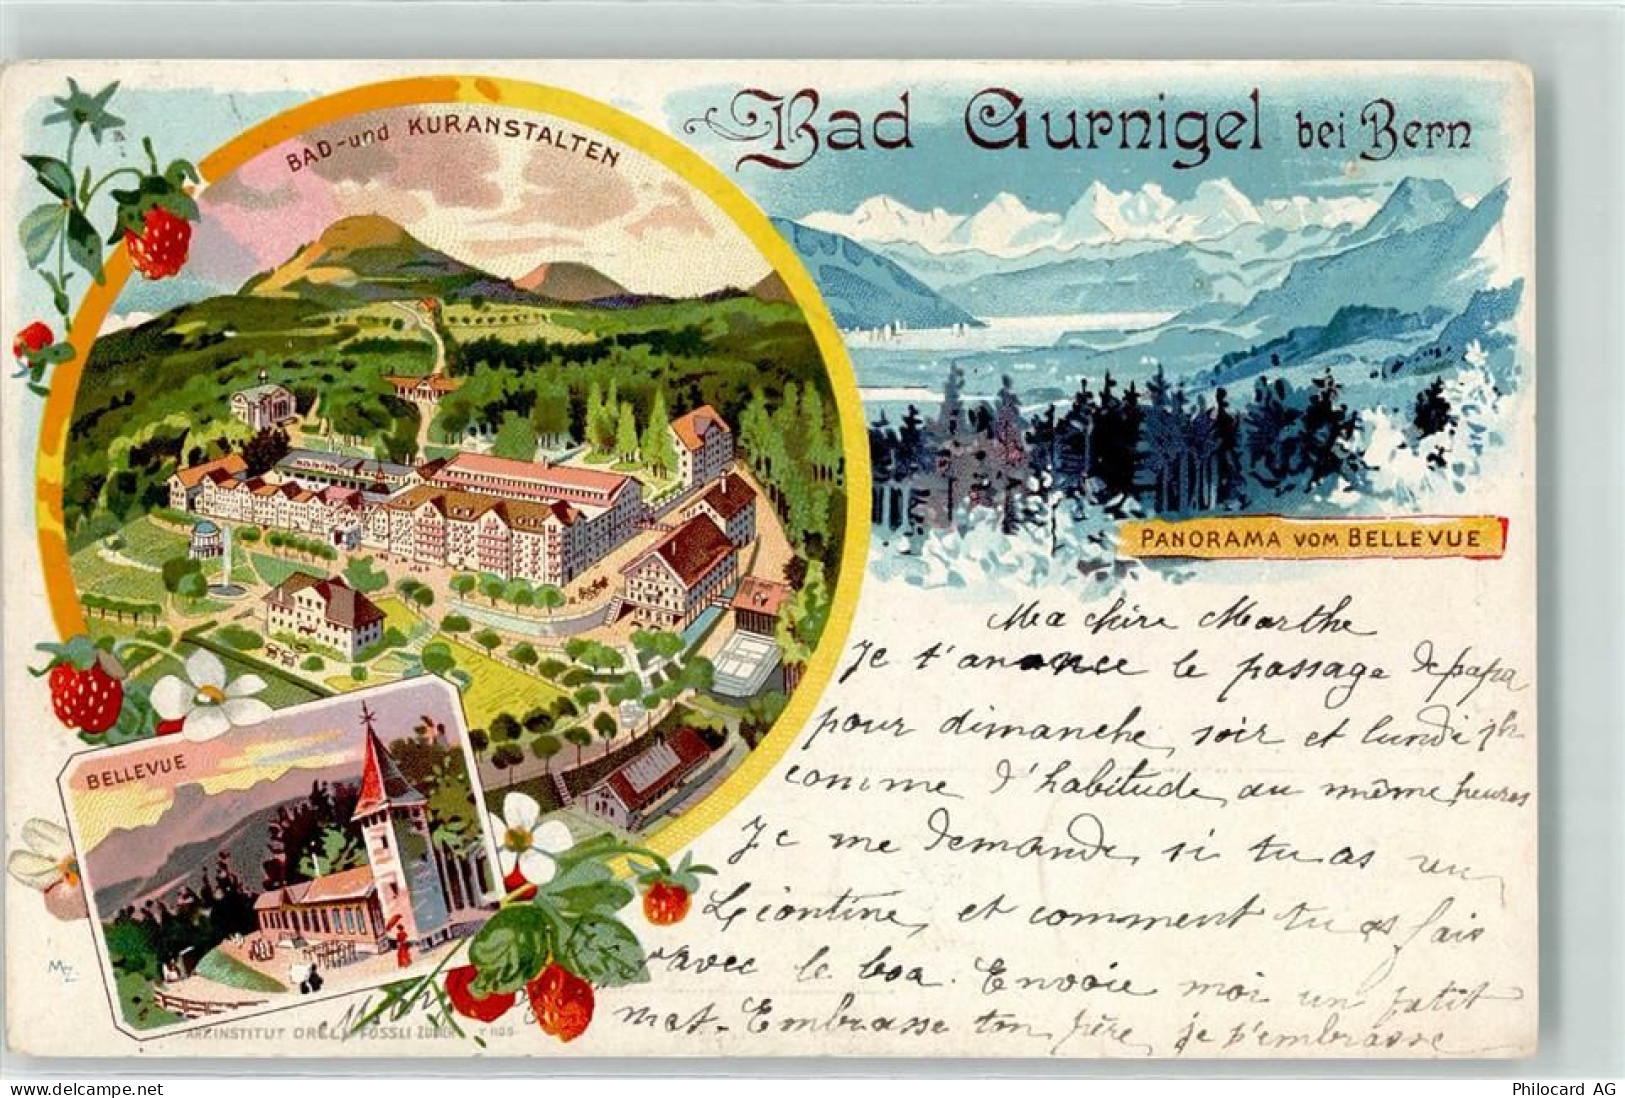 BAD-und KURANSTALTEN
Bad Gurnigel bei Bern
PANORAMA VOM BELLEVUE
BELLEVUE
Ma chère Marthe
Je t'anonce le passage de papa
pour dimanche soir et lundi
comme d'habitude, au même heures
Je me demande, si tu as un
et comment tu as fais
avec le boa. Envoie moi un petit
mot. Embrasse ton père, je t'embrasse
MZ
ART.INSTITUT ORELL FÜSSLI ZÜRICH
www.delcampe.net
Philocard AG